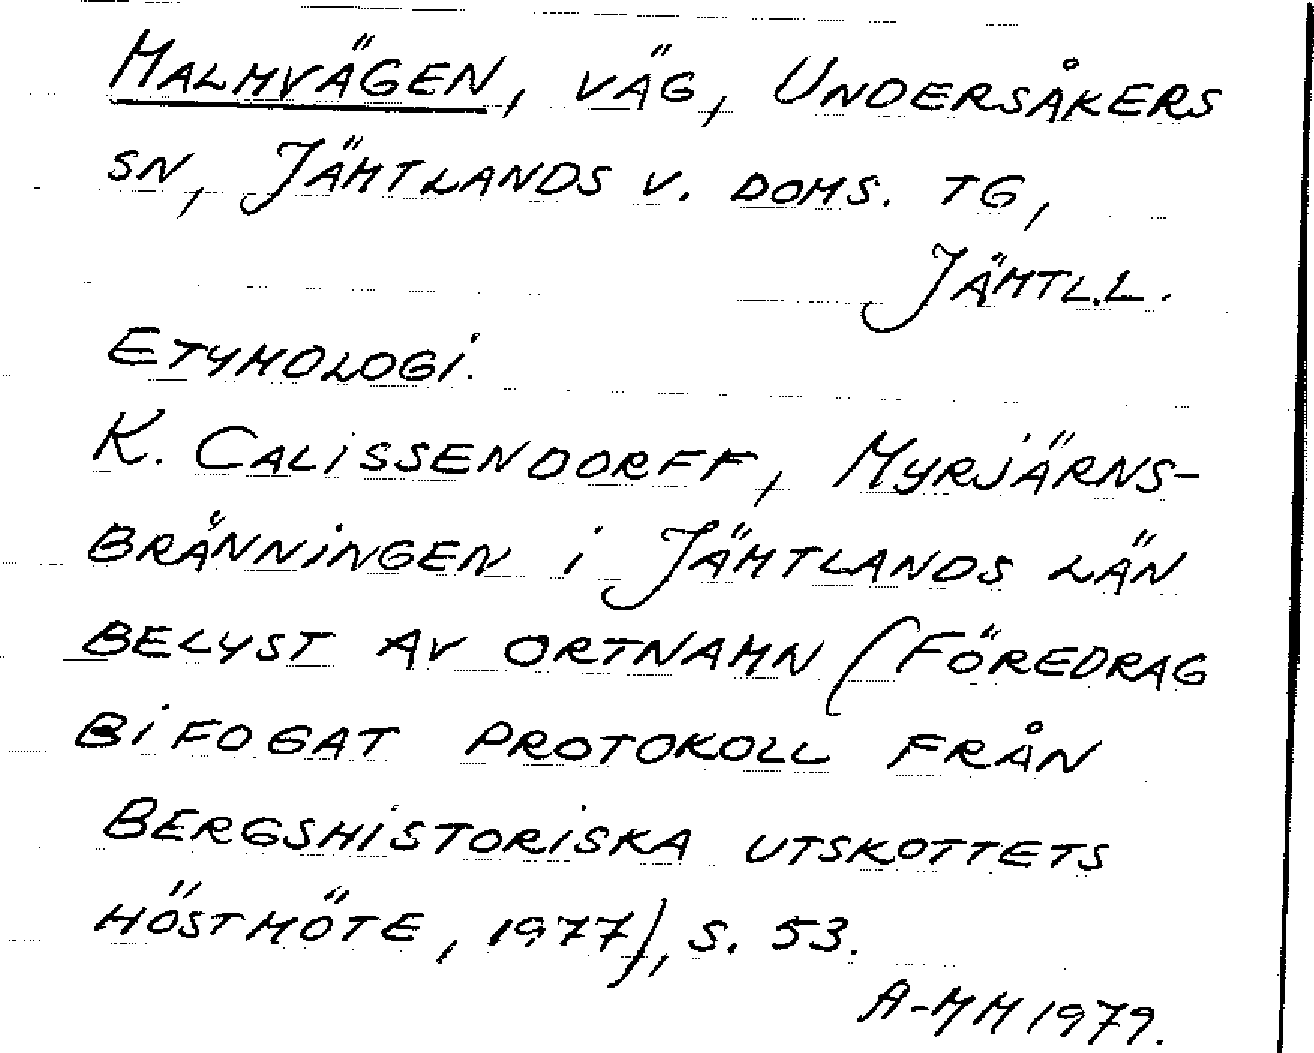 MALMVÄGEN, VÄG, UNDERSÅKERS
SN, JÄMTLANDS V. DOMS. TG,
JÄMTL.L.
ETYMOLOGI.
K. CALISSENDORFF, MYRJÄRNS-
BRÄNNINGEN I JÄMTLANDS LÄN
BELYST AV ORTNAMN (FÖREDRAG
BIFOGAT PROTOKOLL FRÅN
BERGSHISTORISKA UTSKOTTETS
HÖSTMÖTE, 1977), S. 53.
A-MM 1979.